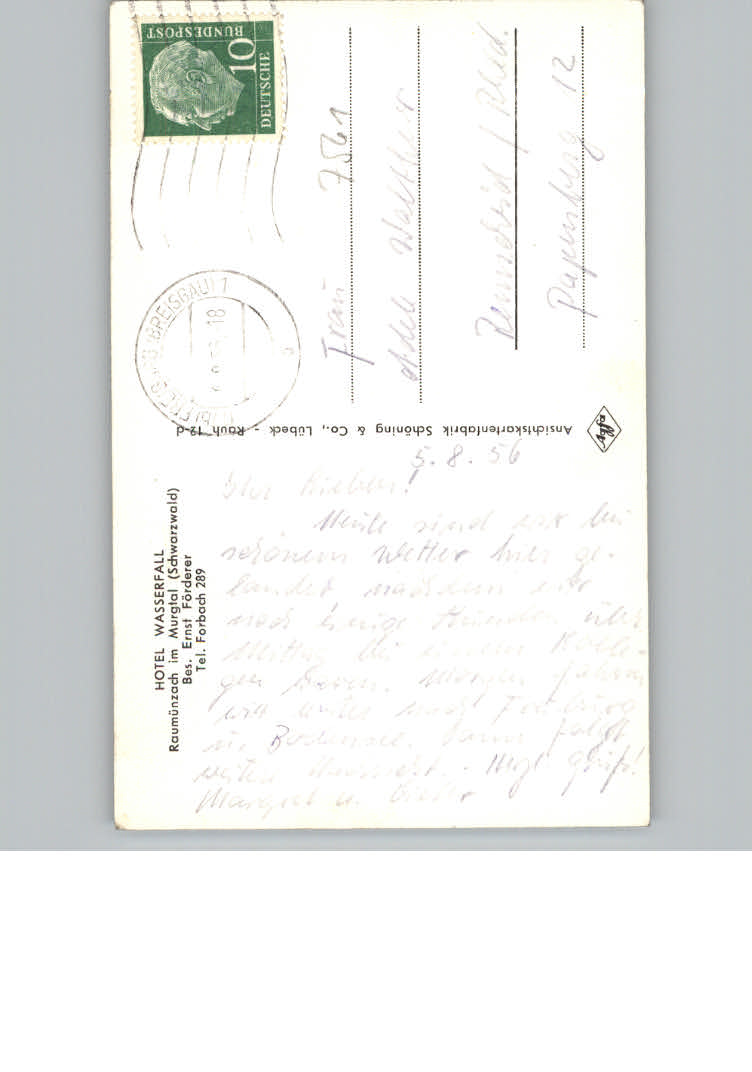 HOTEL WASSERFALL
Raumünzach im Murgtal (Schwarzwald)
Bes. Ernst Förderer
Tel. Forbach 289
5.8.56
Ihr Lieben!
Heute sind wir bei
schönem Wetter hier ge-
landet nachdem wir
noch einige Stunden über
Mittag bei einem Kolle-
gen waren. Morgen fahren
wir weiter nach Freiburg
u. Bodensee. Dann folgt
weitere Nachricht. Herzl. Grüße!
Margret u.
Ansichtskartenfabrik Schöning & Co., Lübeck - Rauh 12-d
agfa
DEUTSCHE
BUNDESPOST
10
(BREISGAU) 1
18
7561
Frau
Walther
Remscheid / Rhld.
Papenberg 12